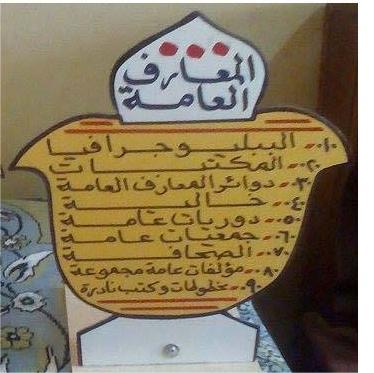 ٠٠٠
المعارف
العامة
٠١٠-- الببليوجرافيا
٠٢٠-- المكتبات
٠٣٠-- دوائر المعارف العامة
٠٤٠-- خالية
٠٥٠-- دوريات عامة
٠٦٠-- جمعيات عامة
٠٧٠-- الصحافة
٠٨٠-- مؤلفات عامة مجموعة
٠٩٠-- مخطوطات وكتب نادرة